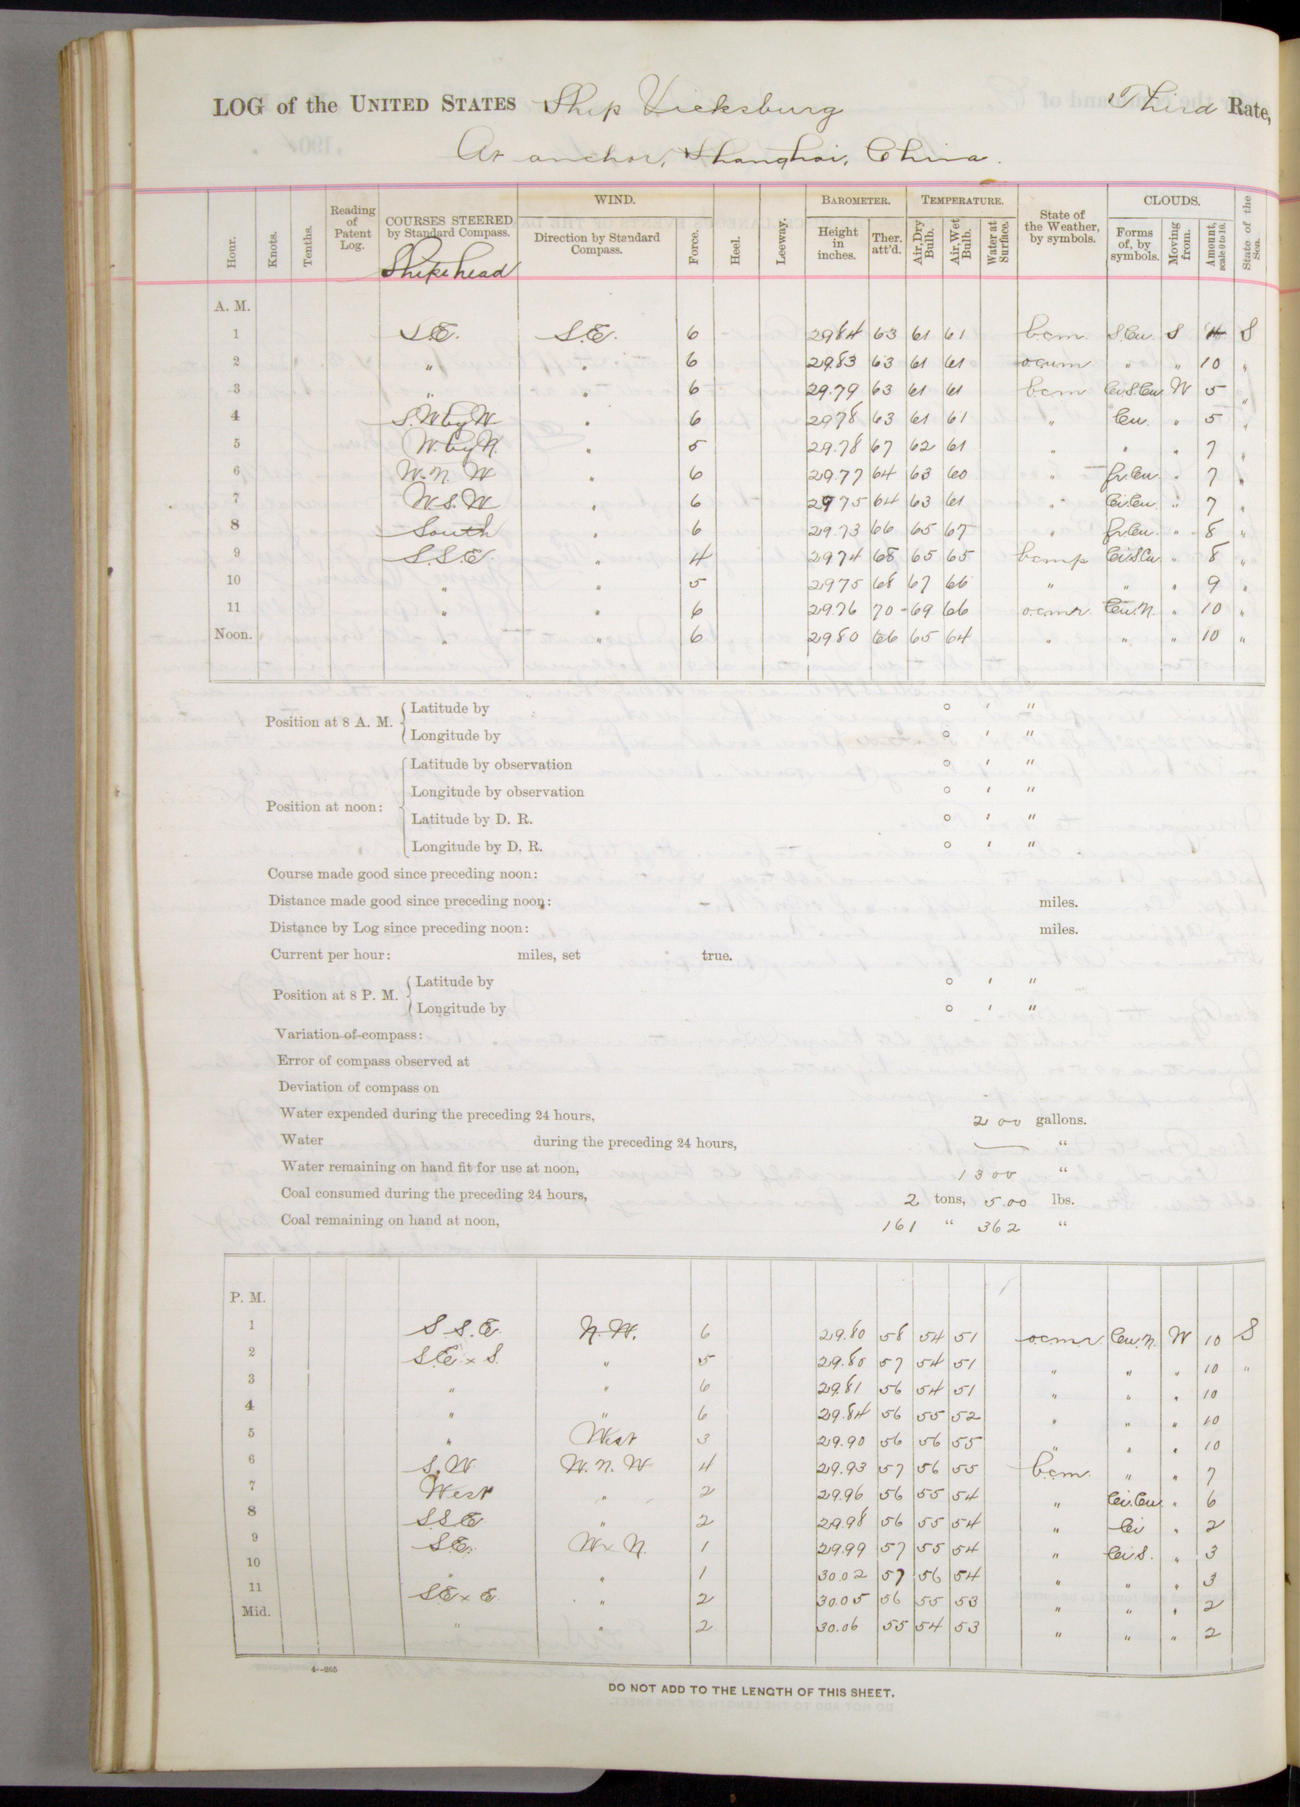 LOG of the UNITED STATES Ship Vicksburg Third Rate,
At anchor, Shanghai, China.
Hour. Knots. Tenths. Reading of Patent Log. COURSES STEERED by Standard Compass. WIND. Direction by Standard Compass. Force. Heel. Leeway. BAROMETER. Height in inches. Ther. att'd. TEMPERATURE. Air, Dry Bulb. Air, Wet Bulb. Water at Surface. State of the Weather, by symbols. CLOUDS. Forms of, by symbols. Moving from. Amount, scale 0 to 10. State of the Sea.
Ship's head
A. M.
1 S.E. S.E. 6 29.84 63 61 61 bcm S.Cu. S 4 S
2 " " 6 29.83 63 61 61 ocum " " 10 "
3 " " 6 29.79 63 61 61 bcm Ci.S.Cu W 5 "
4 S.W by W " 6 29.78 63 61 61 " Cu. " 5 "
5 W. by N. " 5 29.78 67 62 61 " " " 7 "
6 W. N. W " 6 29.77 64 63 60 " fr.Cu. " 7 "
7 W.S.W " 6 29.75 64 63 61 " Ci.Cu. " 7 "
8 South " 6 29.73 66 65 67 fr.Cu. " 8 "
9 S.S.E. " 4 29.74 68 65 65 bcmp Ci.S.Cu. " 8 "
10 " " 5 29.75 68 67 66 " " " 9 "
11 " " 6 29.76 70 69 66 o.c.m.r. Cu.N. " 10 "
Noon. " " 6 29.80 66 65 64 " " " 10 "
Position at 8 A. M. Latitude by ° ' "
Longitude by ° ' "
Position at noon: Latitude by observation ° ' "
Longitude by observation ° ' "
Latitude by D. R. ° ' "
Longitude by D. R. ° ' "
Course made good since preceding noon:
Distance made good since preceding noon: miles.
Distance by Log since preceding noon: miles.
Current per hour: miles, set true.
Position at 8 P. M. Latitude by ° ' "
Longitude by ° ' "
Variation of compass:
Error of compass observed at
Deviation of compass on
Water expended during the preceding 24 hours, 200 gallons.
Water during the preceding 24 hours, — "
Water remaining on hand fit for use at noon, 1300 "
Coal consumed during the preceding 24 hours, 2 tons, 500 lbs.
Coal remaining on hand at noon, 161 " 362 "
P. M.
1 S.S.E. N.W. 6 29.80 58 54 51 o.c.m.r. Cu.N. W 10 S
2 S.E. x S. " 5 29.80 57 54 51 " " " 10 "
3 " " 6 29.81 56 54 51 " " " 10
4 " " 6 29.84 56 55 52 " " " 10
5 " West 3 29.90 56 56 55 " " " 10
6 S.W W.N.W 4 29.93 57 56 55 b.c.m. " " 7
7 West " 2 29.96 56 55 54 " Ci.Cu. " 6
8 S.S.E. " 2 29.98 56 55 54 " Ci " 2
9 S.E. W x N. 1 29.99 57 55 54 " Ci.S. " 3
10 " " 1 30.02 57 56 54 " " " 3
11 S.E x E. " 2 30.05 56 55 53 " " " 2
Mid. " " 2 30.06 55 54 53 " " " 2
4--265
DO NOT ADD TO THE LENGTH OF THIS SHEET.